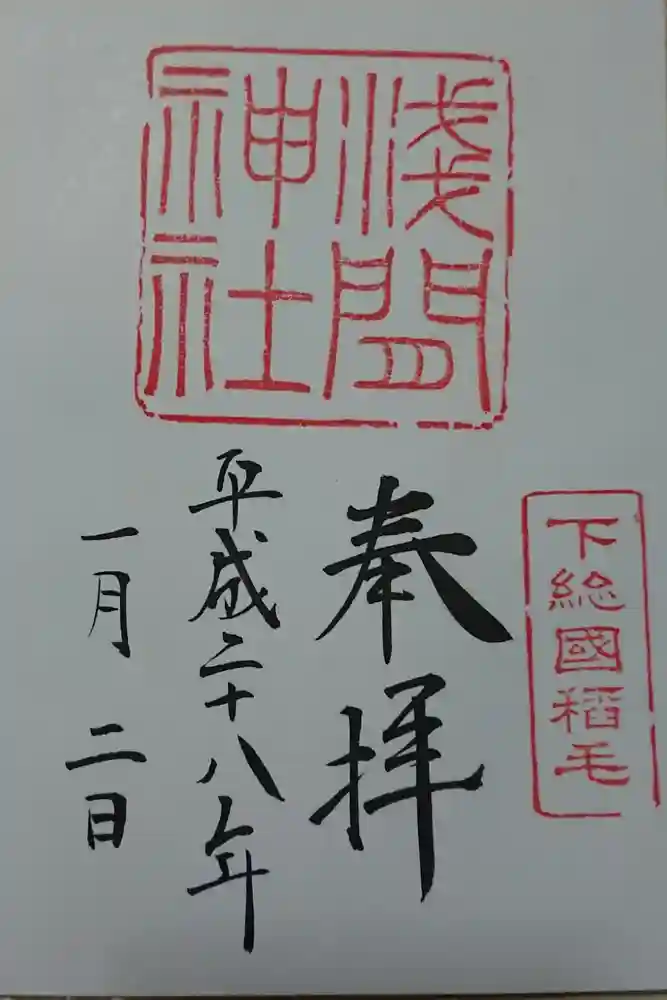 下総國稻毛
奉拝
淺間
神社
平成二十八年
一月二日